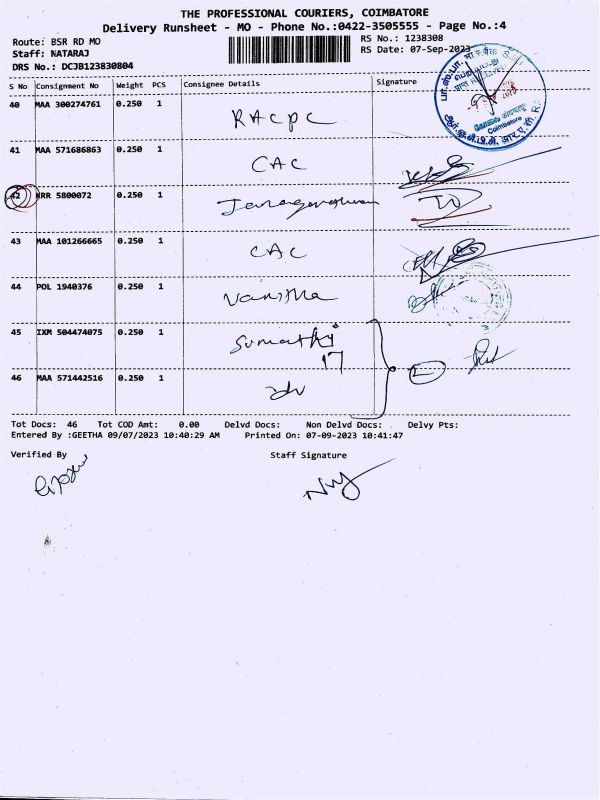 THE PROFESSIONAL COURIERS, COIMBATORE
Delivery Runsheet - MO - Phone No.:0422-3505555 - Page No.:4
Route: BSR RD MO
RS No.: 1238308
Staff: NATARAJ
RS Date: 07-Sep-2023
DRS No.: DCJB123830804
S No Consignment No Weight PCS Consignee Details Signature
40 MAA 300274761 0.250 1 RACPC
41 MAA 571686863 0.250 1 CAC
42 KRR 5800072 0.250 1
43 MAA 101266665 0.250 1 CAC
44 POL 1940376 0.250 1 Vanitha
45 IXM 504474075 0.250 1 Sumathi
17
46 MAA 571442516 0.250 1
Tot Docs: 46 Tot COD Amt: 0.00 Delvd Docs: Non Delvd Docs: Delvy Pts:
Entered By :GEETHA 09/07/2023 10:40:29 AM Printed On: 07-09-2023 10:41:47
Verified By Staff Signature
Coimbatore